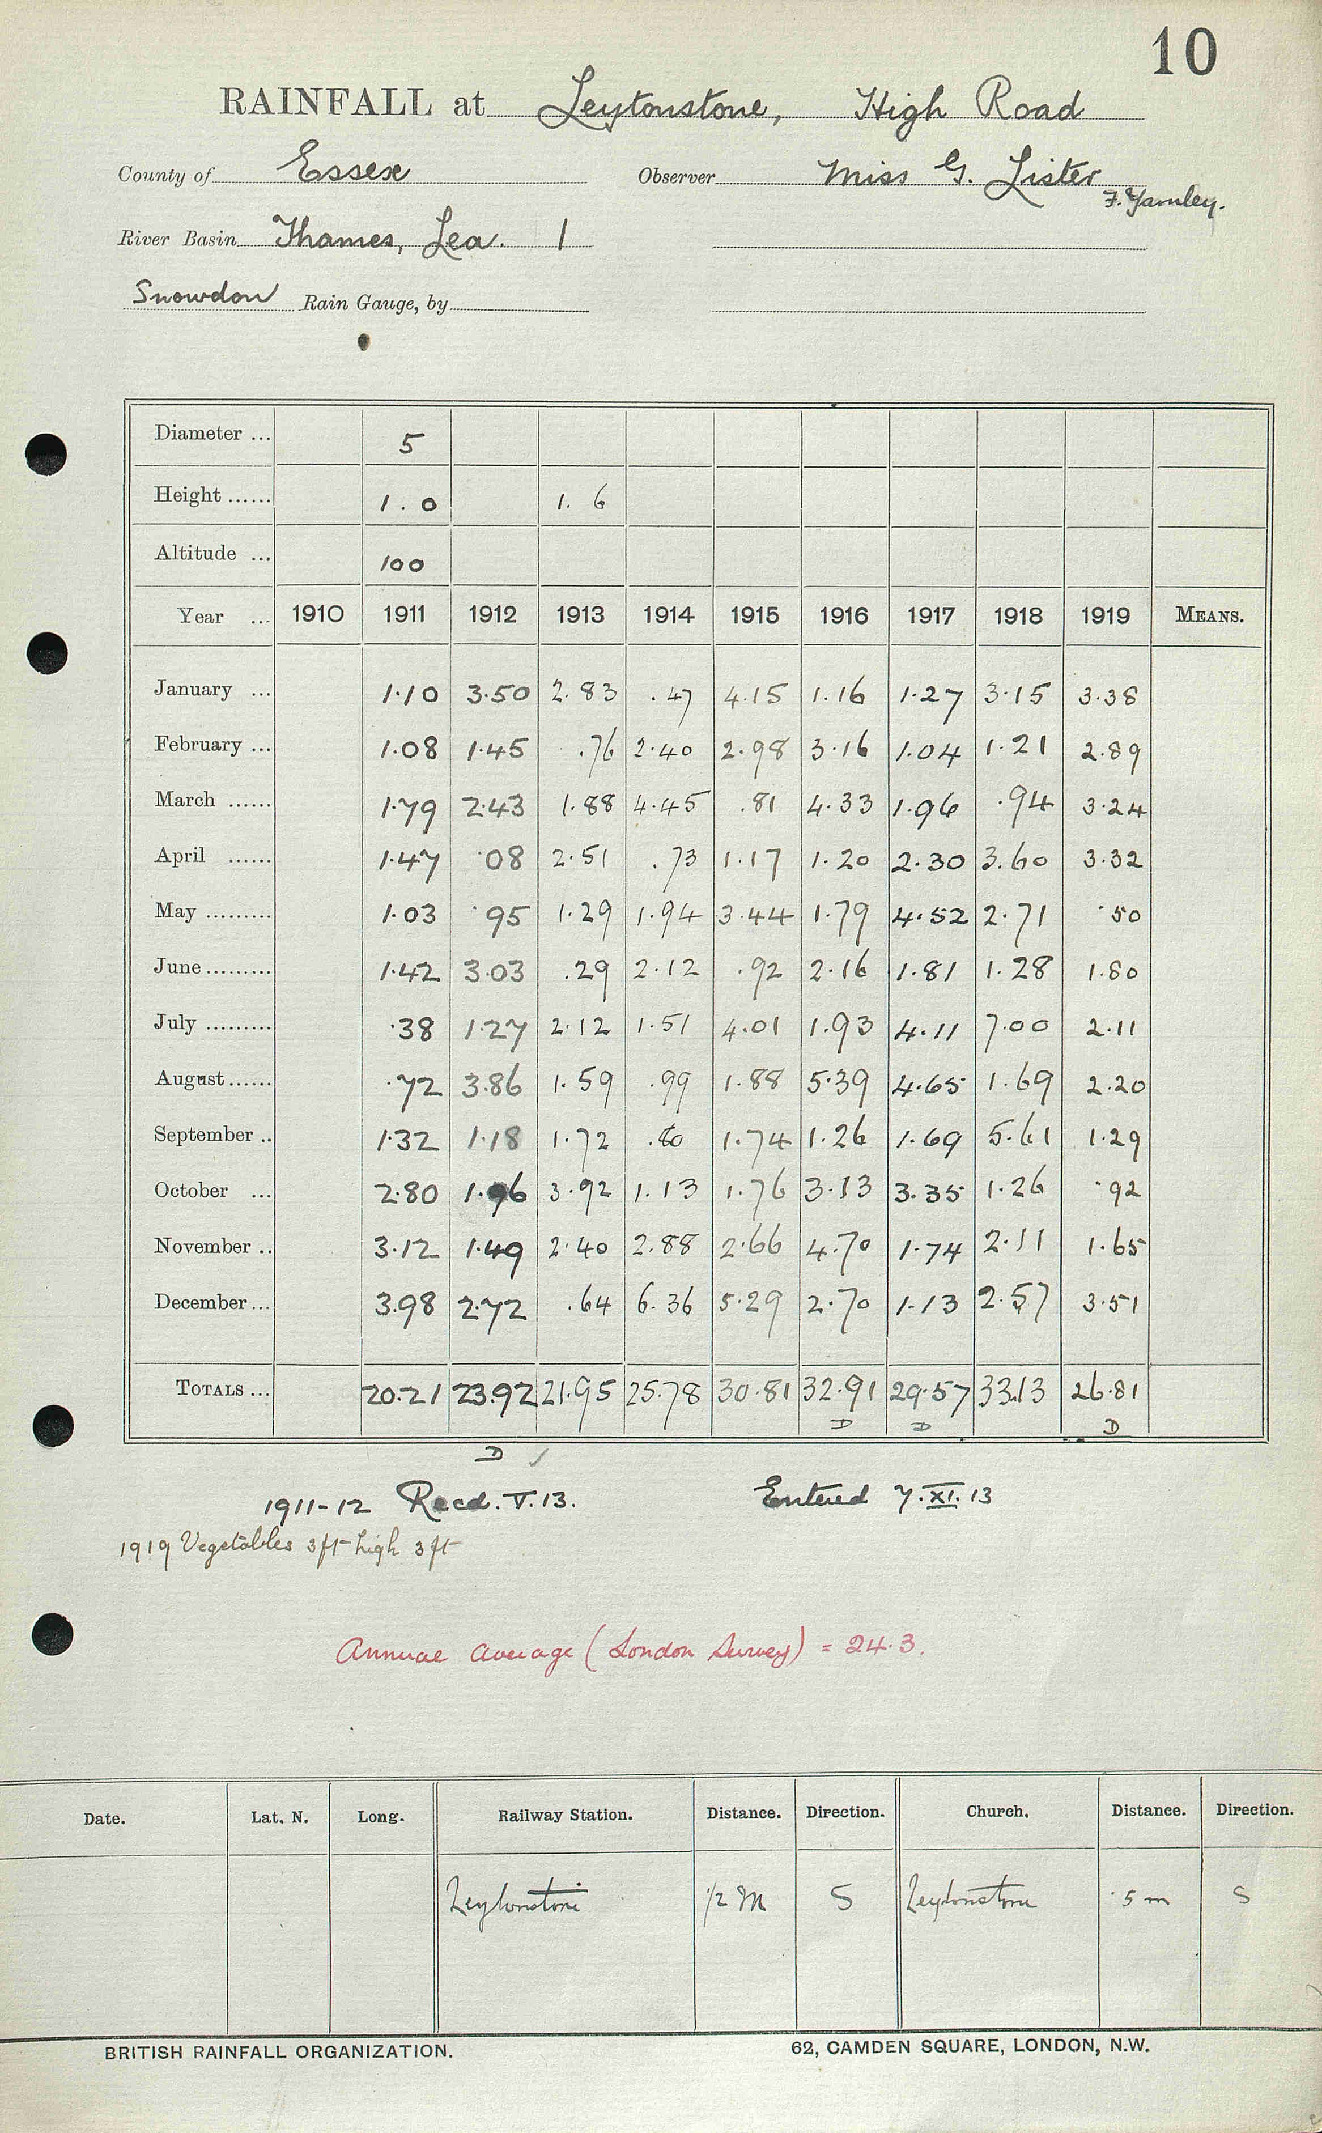 10
RAINFALL at Leytonstone, High Road
County of Essex Observer Miss G. Lister
F. Yamley.
River Basin Thames, Lea. 1
Snowdon Rain Gauge, by
Diameter ... 5
Height ...... 1.0 1.6
Altitude ... 100
Year ... 1910 1911 1912 1913 1914 1915 1916 1917 1918 1919 MEANS.
January ... 1.10 3.50 2.83 .47 4.15 1.16 1.27 3.15 3.38
February ... 1.08 1.45 .76 2.40 2.98 3.16 1.04 1.21 2.89
March ...... 1.79 2.43 1.88 4.45 .81 4.33 1.96 .94 3.24
April ...... 1.47 .08 2.51 .73 1.17 1.20 2.30 3.60 3.32
May ......... 1.03 .95 1.29 1.94 3.44 1.79 4.52 2.71 .50
June ......... 1.42 3.03 .29 2.12 .92 2.16 1.81 1.28 1.80
July ......... .38 1.27 2.12 1.51 4.01 1.93 4.11 7.00 2.11
August ...... .72 3.86 1.59 .99 1.88 5.39 4.65 1.69 2.20
September .. 1.32 1.18 1.72 .80 1.74 1.26 1.69 5.61 1.29
October ... 2.80 1.96 3.92 1.13 1.76 3.13 3.35 1.26 .92
November .. 3.12 1.49 2.40 2.88 2.66 4.70 1.74 2.11 1.65
December ... 3.98 2.72 .64 6.36 5.29 2.70 1.13 2.57 3.51
TOTALS ... 20.21 23.92 21.95 25.78 30.81 32.91 29.57 33.13 26.81
D D D
D ✓
1911-12 Recd. V. 13. Entered 7.XI.13
1919 Vegetables 3ft high 3ft
Annual average (London Survey) = 24.3.
Date. Lat. N. Long. Railway Station. Distance. Direction. Church. Distance. Direction.
Leytonstone 1/2 M S Leytonstone .5 m S
BRITISH RAINFALL ORGANIZATION. 62, CAMDEN SQUARE, LONDON, N.W.